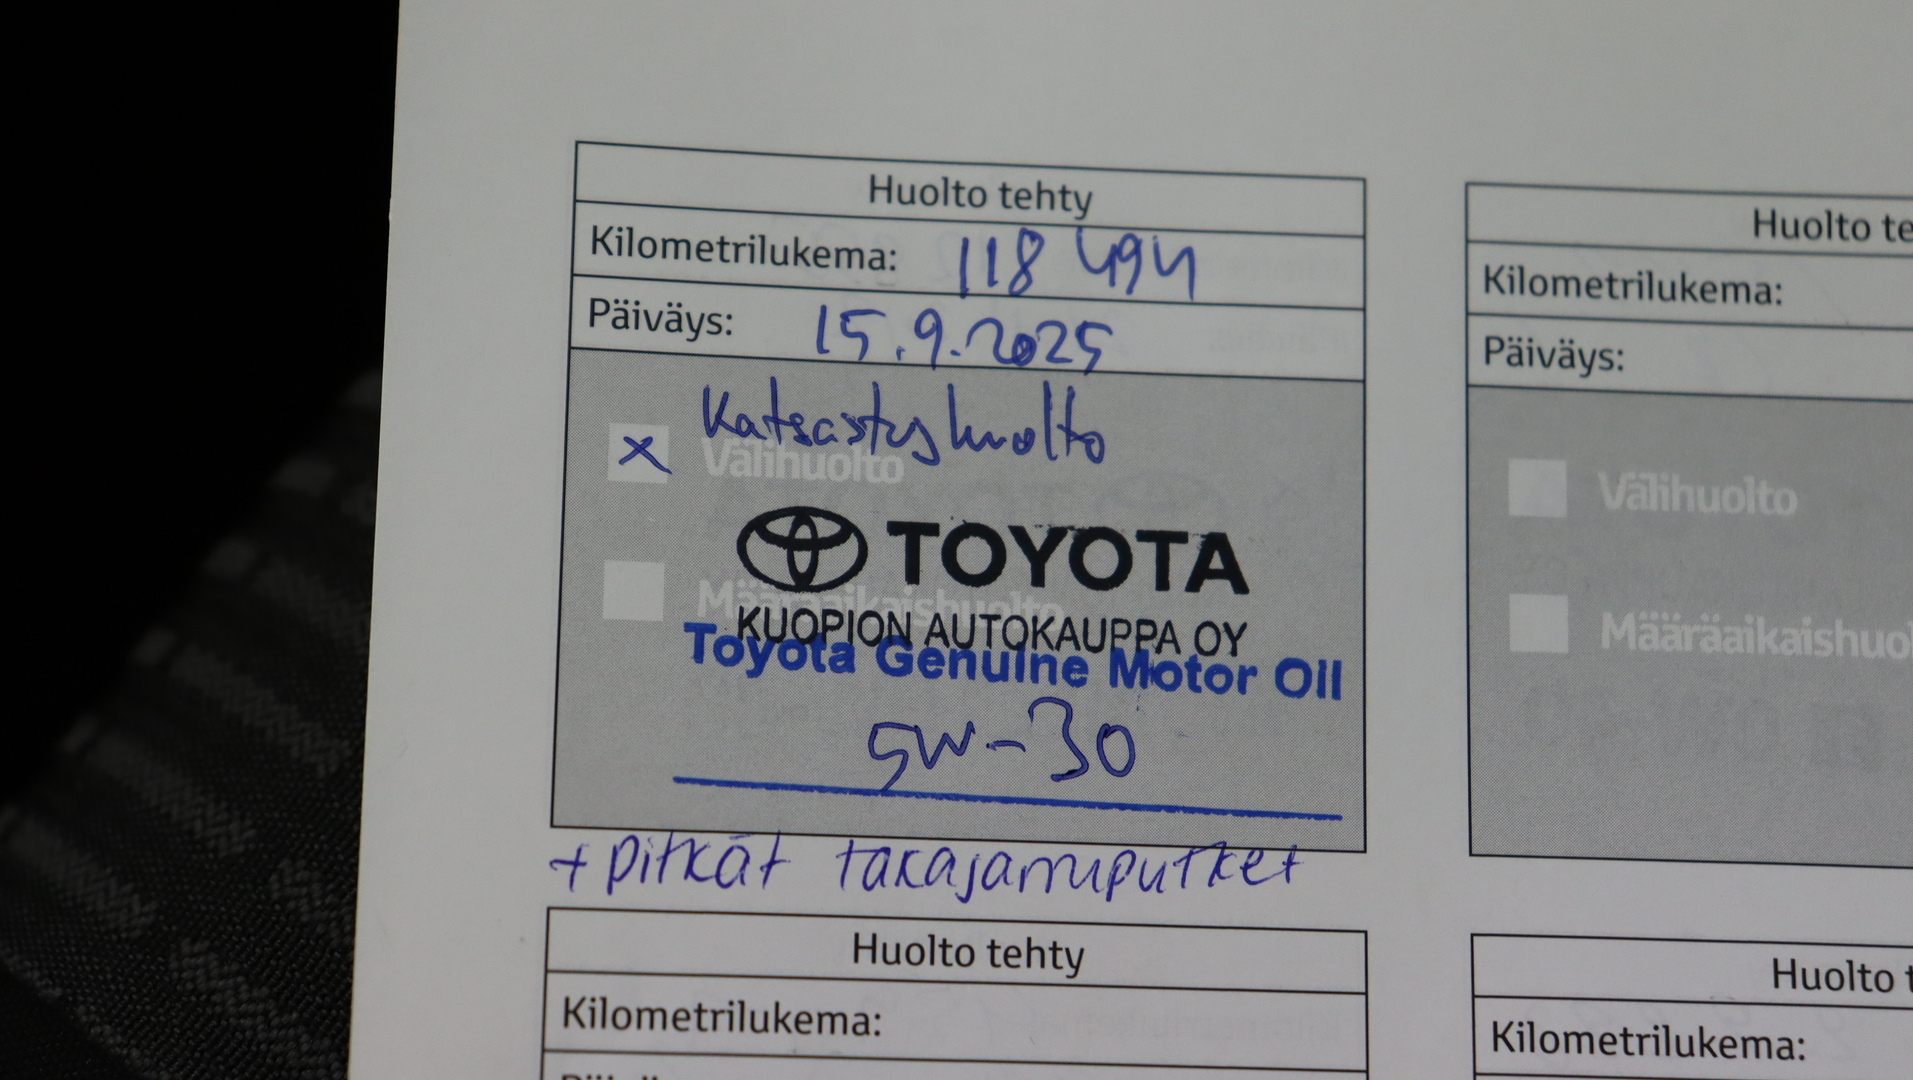 Huolto tehty
Kilometrilukema: 118 494
Päiväys: 15.9.2025
Katsastushuolto
x Välihuolto
TOYOTA
Määräaikaishuolto
KUOPION AUTOKAUPPA OY
Toyota Genuine Motor Oil
5W-30
+ pitkät takajarruputket
Huolto te
Kilometrilukema:
Päiväys:
Välihuolto
Määräaikaishuol
Huolto tehty
Kilometrilukema:
Huolto t
Kilometrilukema: